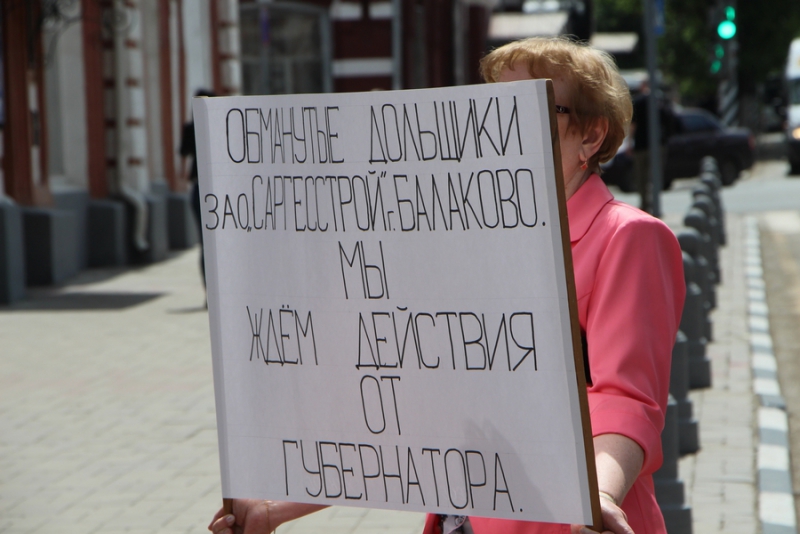 ОБМАНУТЫЕ ДОЛЬЩИКИ
ЗАО„САРГЕССТРОЙ"г.БАЛАКОВО.
МЫ
ЖДЁМ ДЕЙСТВИЯ
ОТ
ГУБЕРНАТОРА.